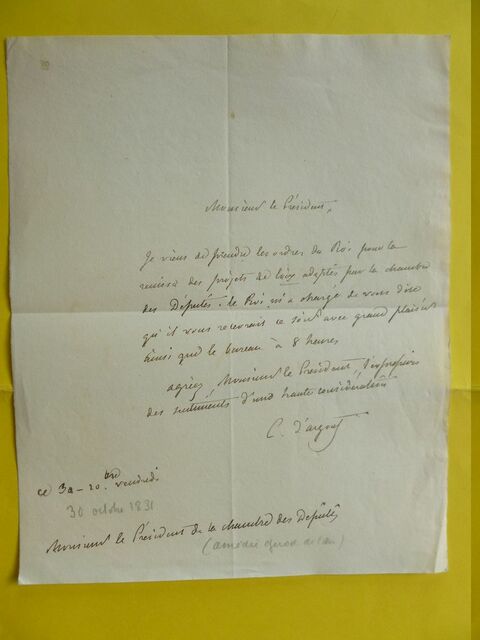 Monsieur le Président,
Je viens de prendre les ordres du Roi pour la
remise des projets de loix adoptés par la chambre
des Députés. le Roi m'a chargé de vous dire
qu'il vous recevrait ce soir avec grand plaisir
ainsi que le bureau à 8 heures
agréez, Monsieur le Président, l'expression
des sentiments d'une haute considération
C. d'argout
ce 30 - 10bre vendredi
30 octobre 1831
Monsieur le Président de la chambre des Députés
(amédée girod de l'ain)